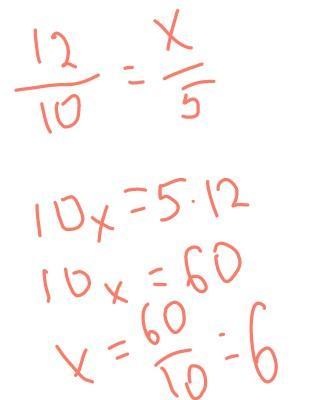 12/10 = x/5
10x = 5·12
10x = 60
x = 60/10 = 6